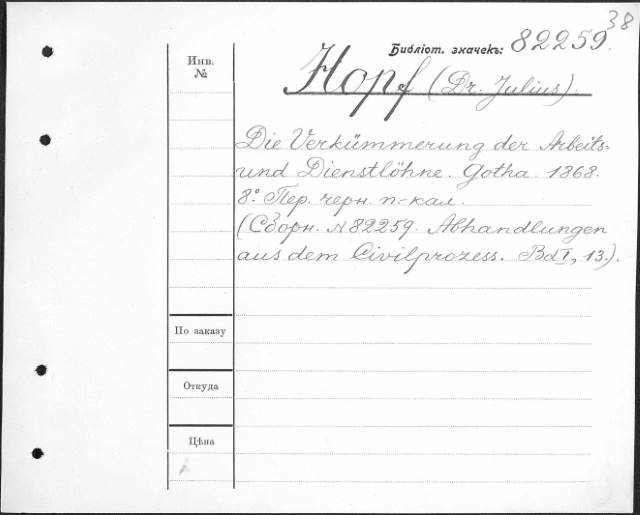 38
Библіот. значекъ: 82259.
Инв.
№
Hopf (Dr. Julius).
Die Verkümmerung der Arbeits-
und Dienstlöhne. Gotha 1868.
8.° Пер. черн. п-кал.
(Сборн. №82259. Abhandlungen
aus dem Civilprozess. Bd I, 13.).
По заказу
Откуда
Цѣна